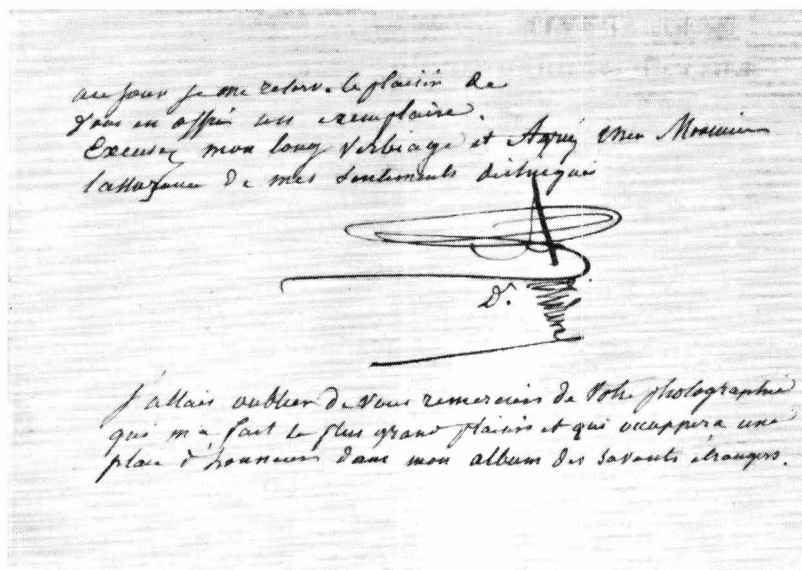 au jour je me reserve le plaisir de
vous en offrir un exemplaire.
Excusez mon long verbiage et Agréez cher Monsieur
l'assurance de mes sentiments distingués
Dr.
J'allais oublier de vous remercier de votre photographie
qui m'a fait le plus grand plaisir et qui occuppera une
place d'honneur dans mon album des savants étrangers.